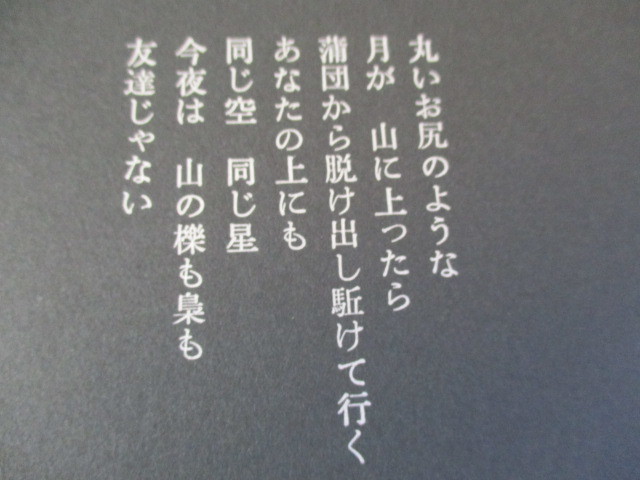 丸いお尻のような
月が　山に上ったら
蒲団から脱け出し駈けて行く
あなたの上にも
同じ空　同じ星
今夜は　山の櫟も梟も
友達じゃない